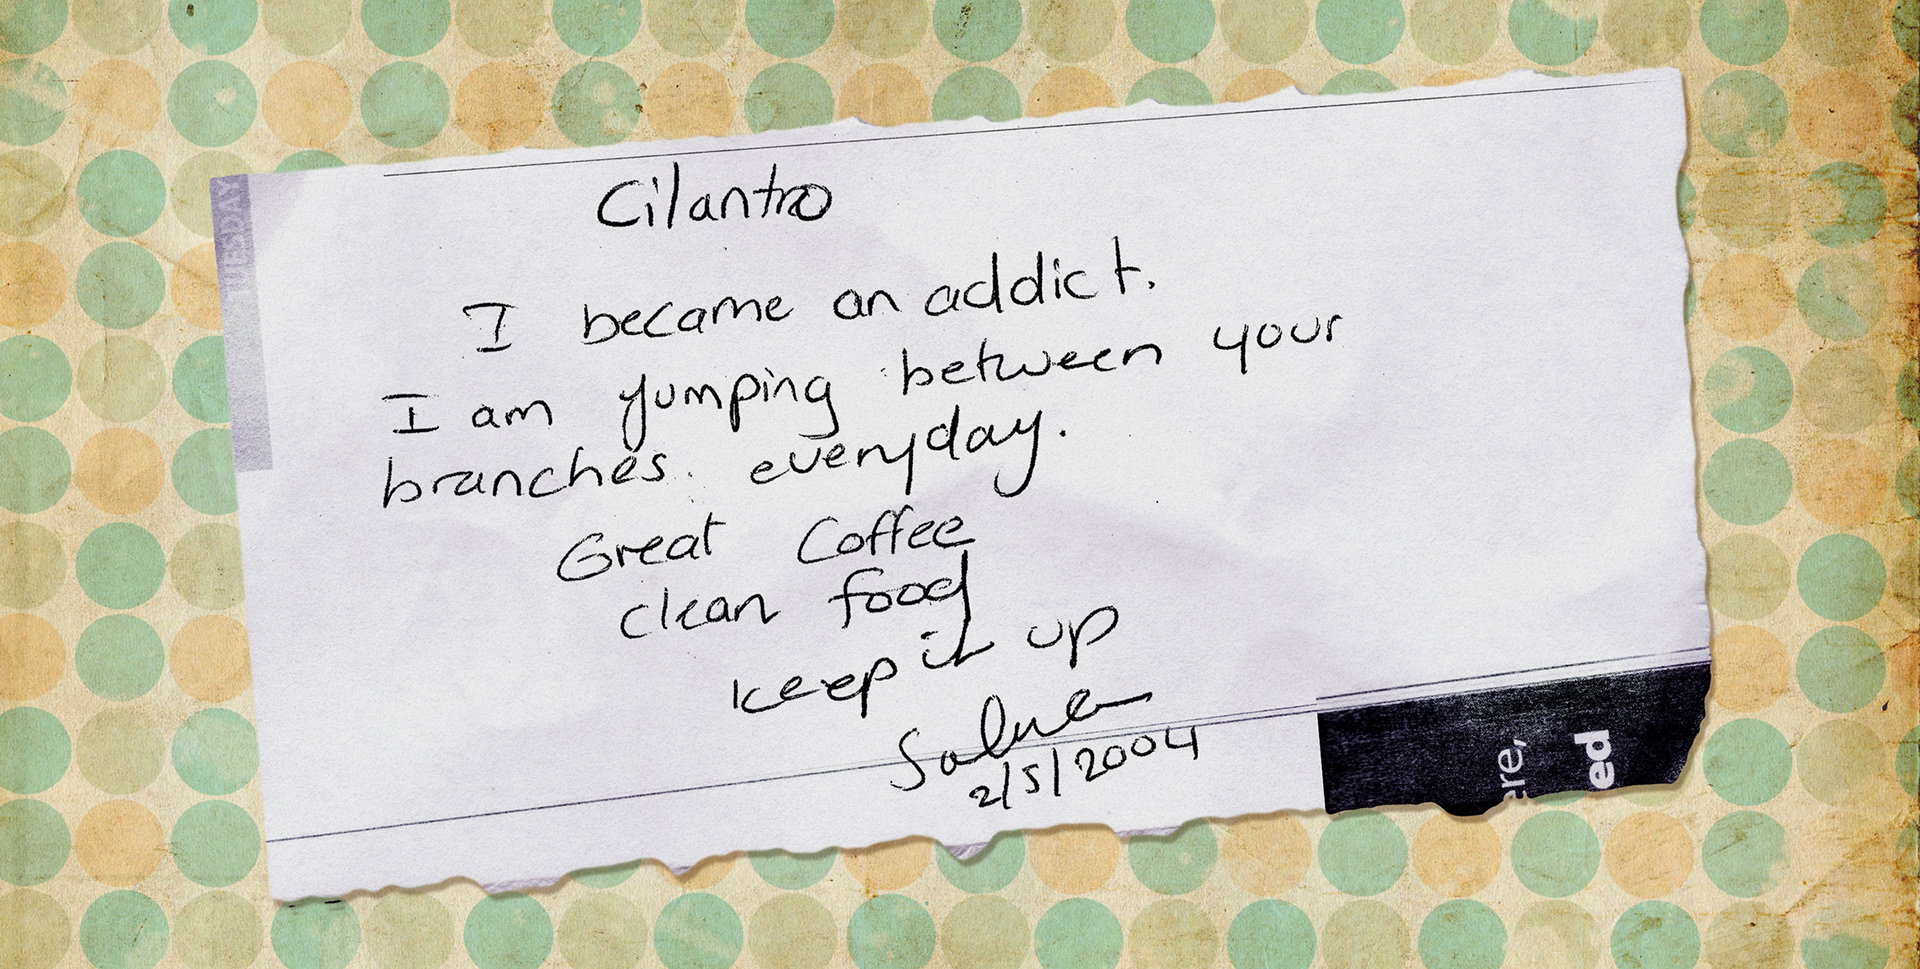 TUESDAY
Cilantro
I became an addict.
I am yumping between your
branches. everyday.
Great Coffee
clean food
keep it up
2/5/2004
ere,
ed